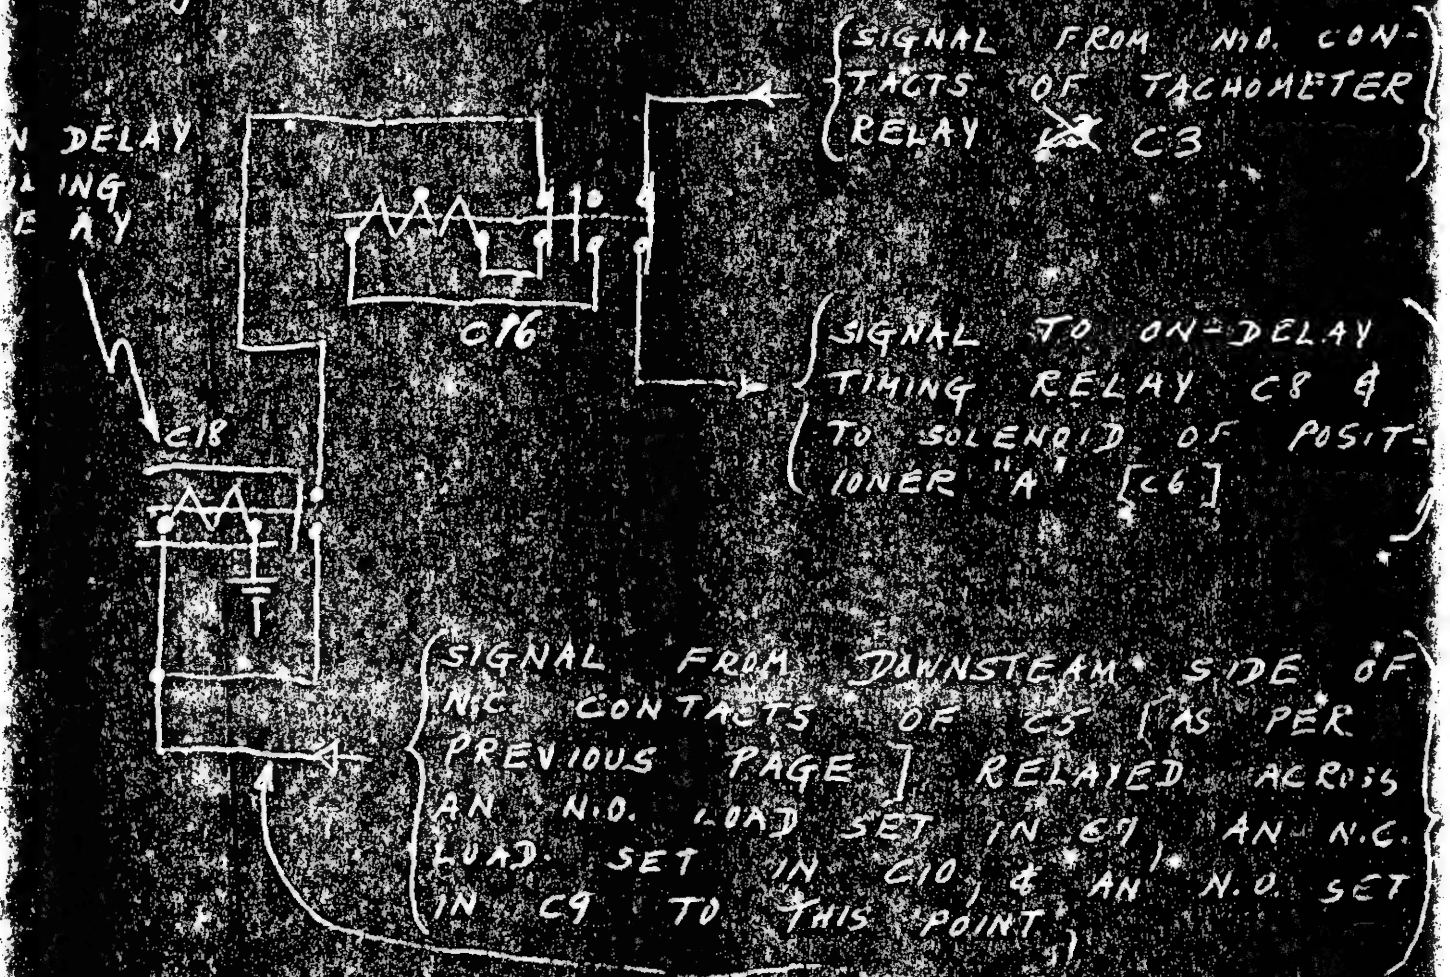 SIGNAL FROM N.O. CON-
TACTS OF TACHOMETER
RELAY C3
DELAY
C16
SIGNAL TO ON-DELAY
TIMING RELAY C8 &
TO SOLENOID OF POSIT-
IONER "A" [C6]
C18
SIGNAL FROM DOWNSTEAM SIDE OF
N.C. CONTACTS OF C5 [AS PER
PREVIOUS PAGE] RELAYED ACROSS
AN N.O. LOAD SET IN C7, AN N.C.
LOAD SET IN C10, & AN N.O. SET
IN C9 TO THIS POINT,